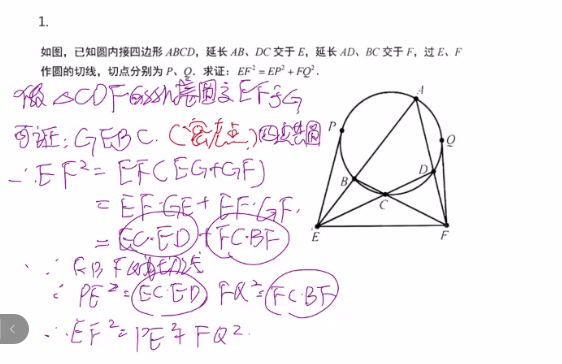 1.
如图，已知圆内接四边形 ABCD，延长 AB、DC 交于 E，延长 AD、BC 交于 F，过 E、F
作圆的切线，切点分别为 P、Q．求证：EF²=EP²+FQ²．
做△CDF 接圆交EF于G
可证：GEBC（密克点）四点共圆
∴EF²=EF(EG+GF)
=EF·GE+EF·GF
=EC·ED+FC·BF
∵
∴PE²=EC·ED FQ²=FC·BF
∴EF²=PE²+FQ²
A
P
Q
B
D
C
E
F